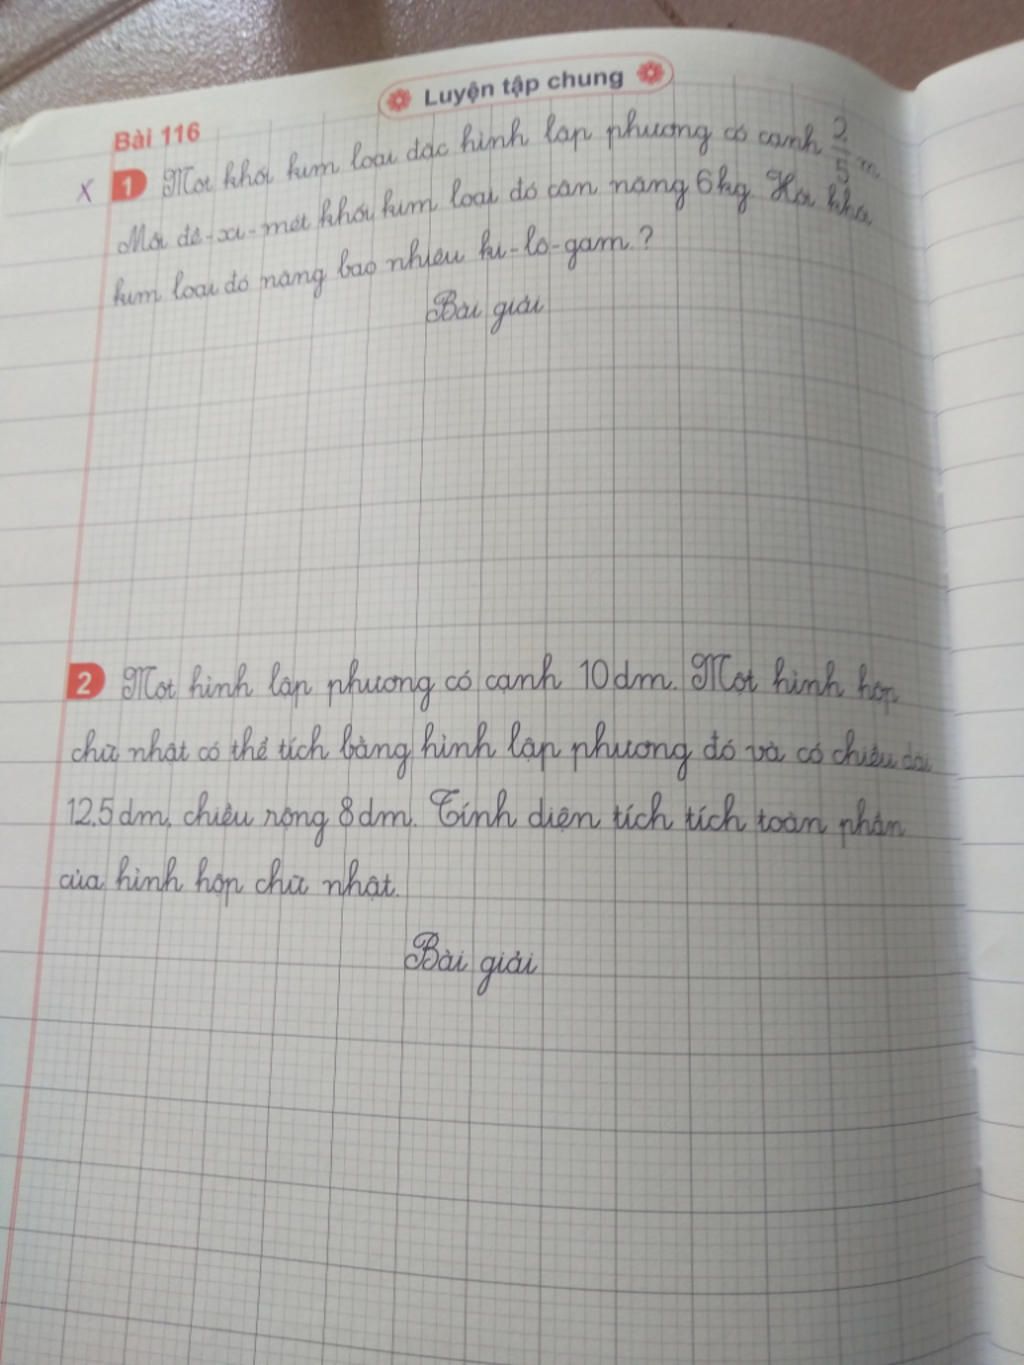 Luyện tập chung
Bài 116
x 1 Một khối kim loại đặc hình lập phương có cạnh 2/5 m
Mỗi đề-xi-mét khối kim loại đó cân nặng 6kg Hỏi khối
kim loại đó nặng bao nhiêu ki-lô-gam?
Bài giải
2 Một hình lập phương có cạnh 10dm. Một hình hộp
chữ nhật có thể tích bằng hình lập phương đó và có chiều dài
12,5dm, chiều rộng 8dm. Tính diện tích tích toàn phần
của hình hộp chữ nhật.
Bài giải